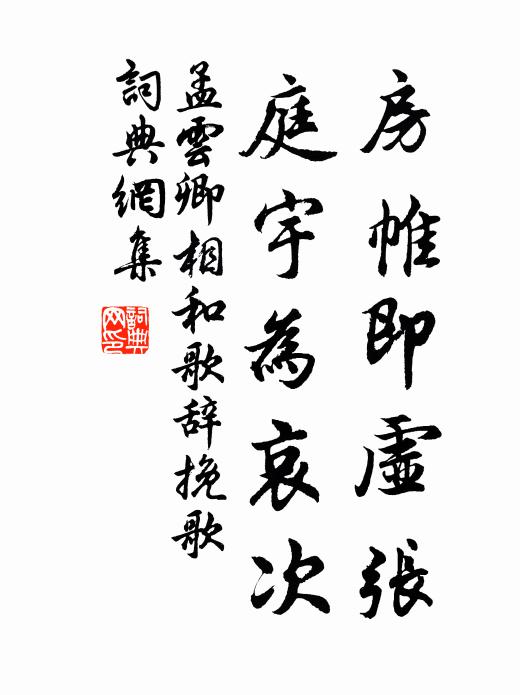 房帷即虛張
庭宇為哀次
孟雲卿相和歌辞挽歌
詞典網集
詞典网印